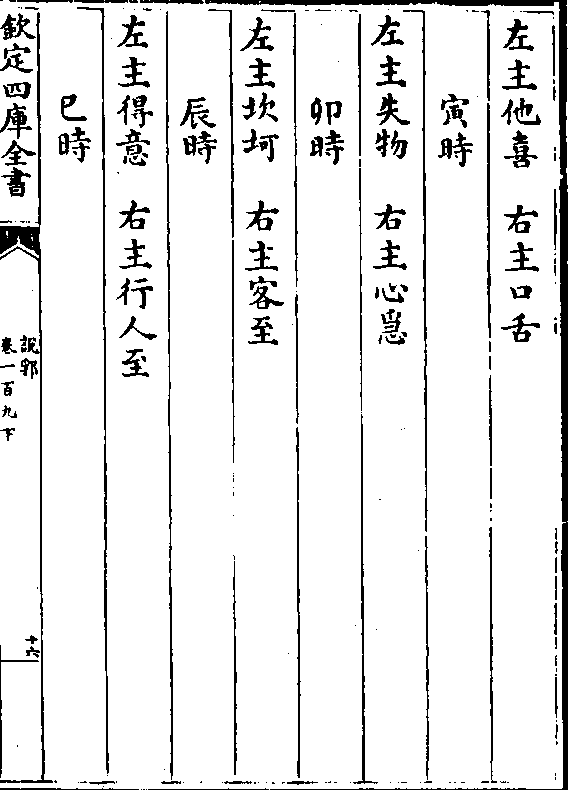 左主他喜　右主口舌
寅時
左主失物　右主心㥯
卯時
左主坎坷　右主客至
辰時
左主得意　右主行人至
巳時
欽定四庫全書
說郛
卷一百九下
十六